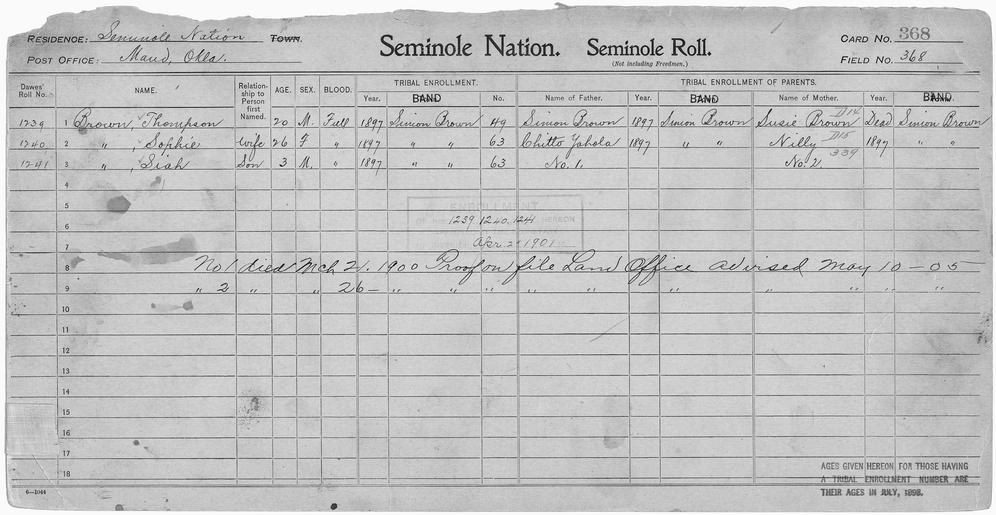 RESIDENCE: Seminole Nation TOWN.
POST OFFICE: Maud, Okla.
Seminole Nation. Seminole Roll.
(Not including Freedmen.)
CARD NO. 368
FIELD NO. 368
Dawes' Roll No. NAME. Relationship to Person first Named. AGE. SEX. BLOOD. TRIBAL ENROLLMENT. TRIBAL ENROLLMENT OF PARENTS.
Year. BAND No. Name of Father. Year. BAND Name of Mother. Year. BAND.
D14
1239 1 Brown, Thompson 20 M. Full 1897 Simion Brown 49 Simion Brown 1897 Simion Brown Susie Brown Dead Simion Brown
D15
1240 2 " , Sophie Wife 26 F " 1897 " " 63 Chitto Yahola 1897 " " Nilly 1897 " "
339
1241 3 " , Siah Son 3 M. " 1897 " " 63 No. 1. No. 2.
4
5
ENROLLMENT
HEREON
6 1239. 1240. 1241
7 Apr. 2 1901
8 No 1 died Mch 21. 1900 Proof on file Land Office advised May 10-05
9 " 2 " " 26- " " " " " " " " "
10
11
12
13
14
15
16
17
18
6-1044
AGES GIVEN HEREON FOR THOSE HAVING
A TRIBAL ENROLLMENT NUMBER ARE
THEIR AGES IN JULY, 1898.